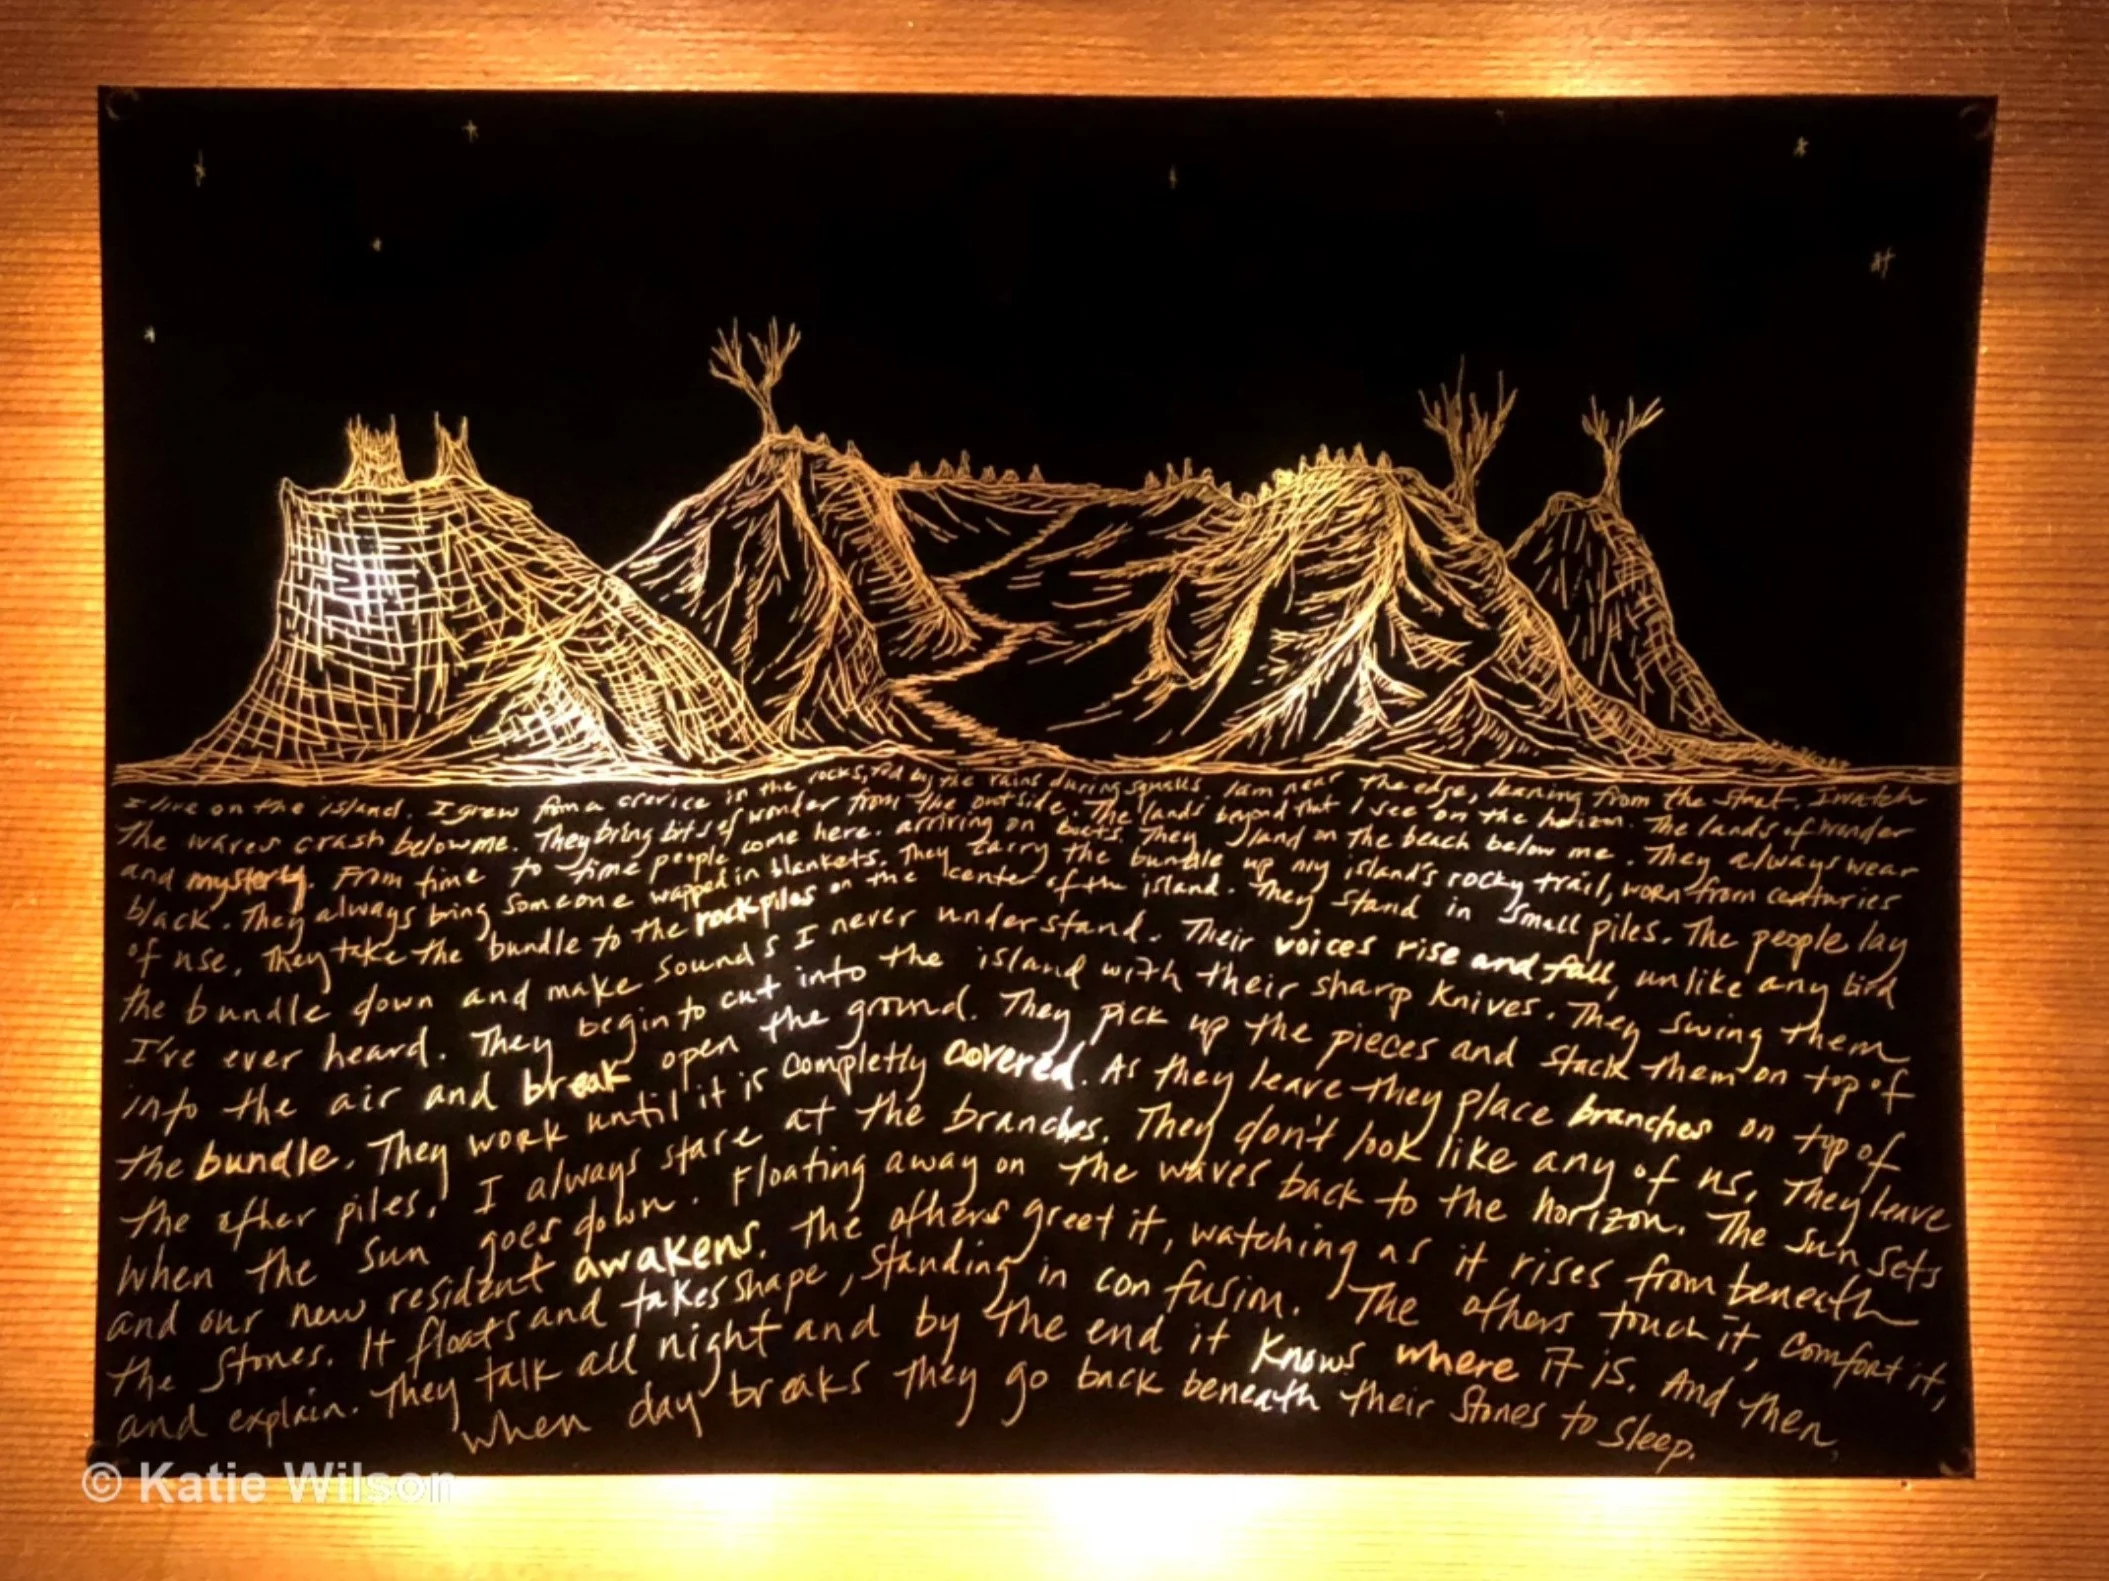 I live on the island. I grew from a crevice in the rocks, fed by the rains during squalls. I am near the edge, leaning from the start. I watch
the waves crash below me. They bring bits of wonder from the outside. The lands beyond that I see on the horizon. The lands of wonder
and mystery. From time to time people come here. arriving on boats. They land on the beach below me. They always wear
black. They always bring someone wrapped in blankets. They carry the bundle up my island's rocky trail, worn from centuries
of use. They take the bundle to the rock piles on the center of the island. They stand in small piles. The people lay
the bundle down and make sounds I never understand. Their voices rise and fall, unlike any bird
I've ever heard. They begin to cut into the island with their sharp knives. They swing them
into the air and break open the ground. They pick up the pieces and stack them on top of
the bundle. They work until it is completly covered. As they leave they place branches on top of
the other piles. I always stare at the branches. They don't look like any of us. They leave
when the sun goes down. Floating away on the waves back to the horizon. The sun sets
and our new resident awakens. The others greet it, watching as it rises from beneath
the stones. It floats and takes shape, standing in confusion. The others touch it, comfort it,
and explain. They talk all night and by the end it knows where it is. And then,
when day breaks they go back beneath their stones to sleep.
© Katie Wilson